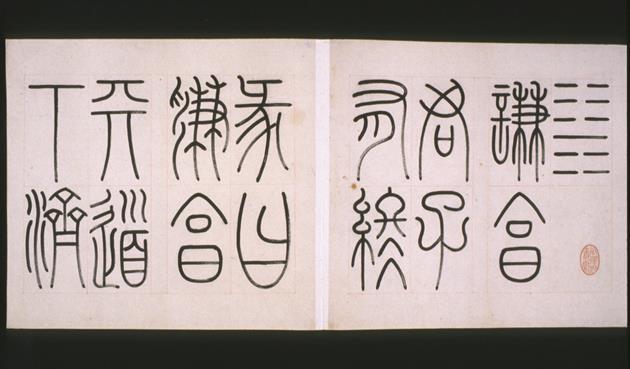 ䷎
謙亨
君子
有終
彖曰
謙亨
天道
下濟